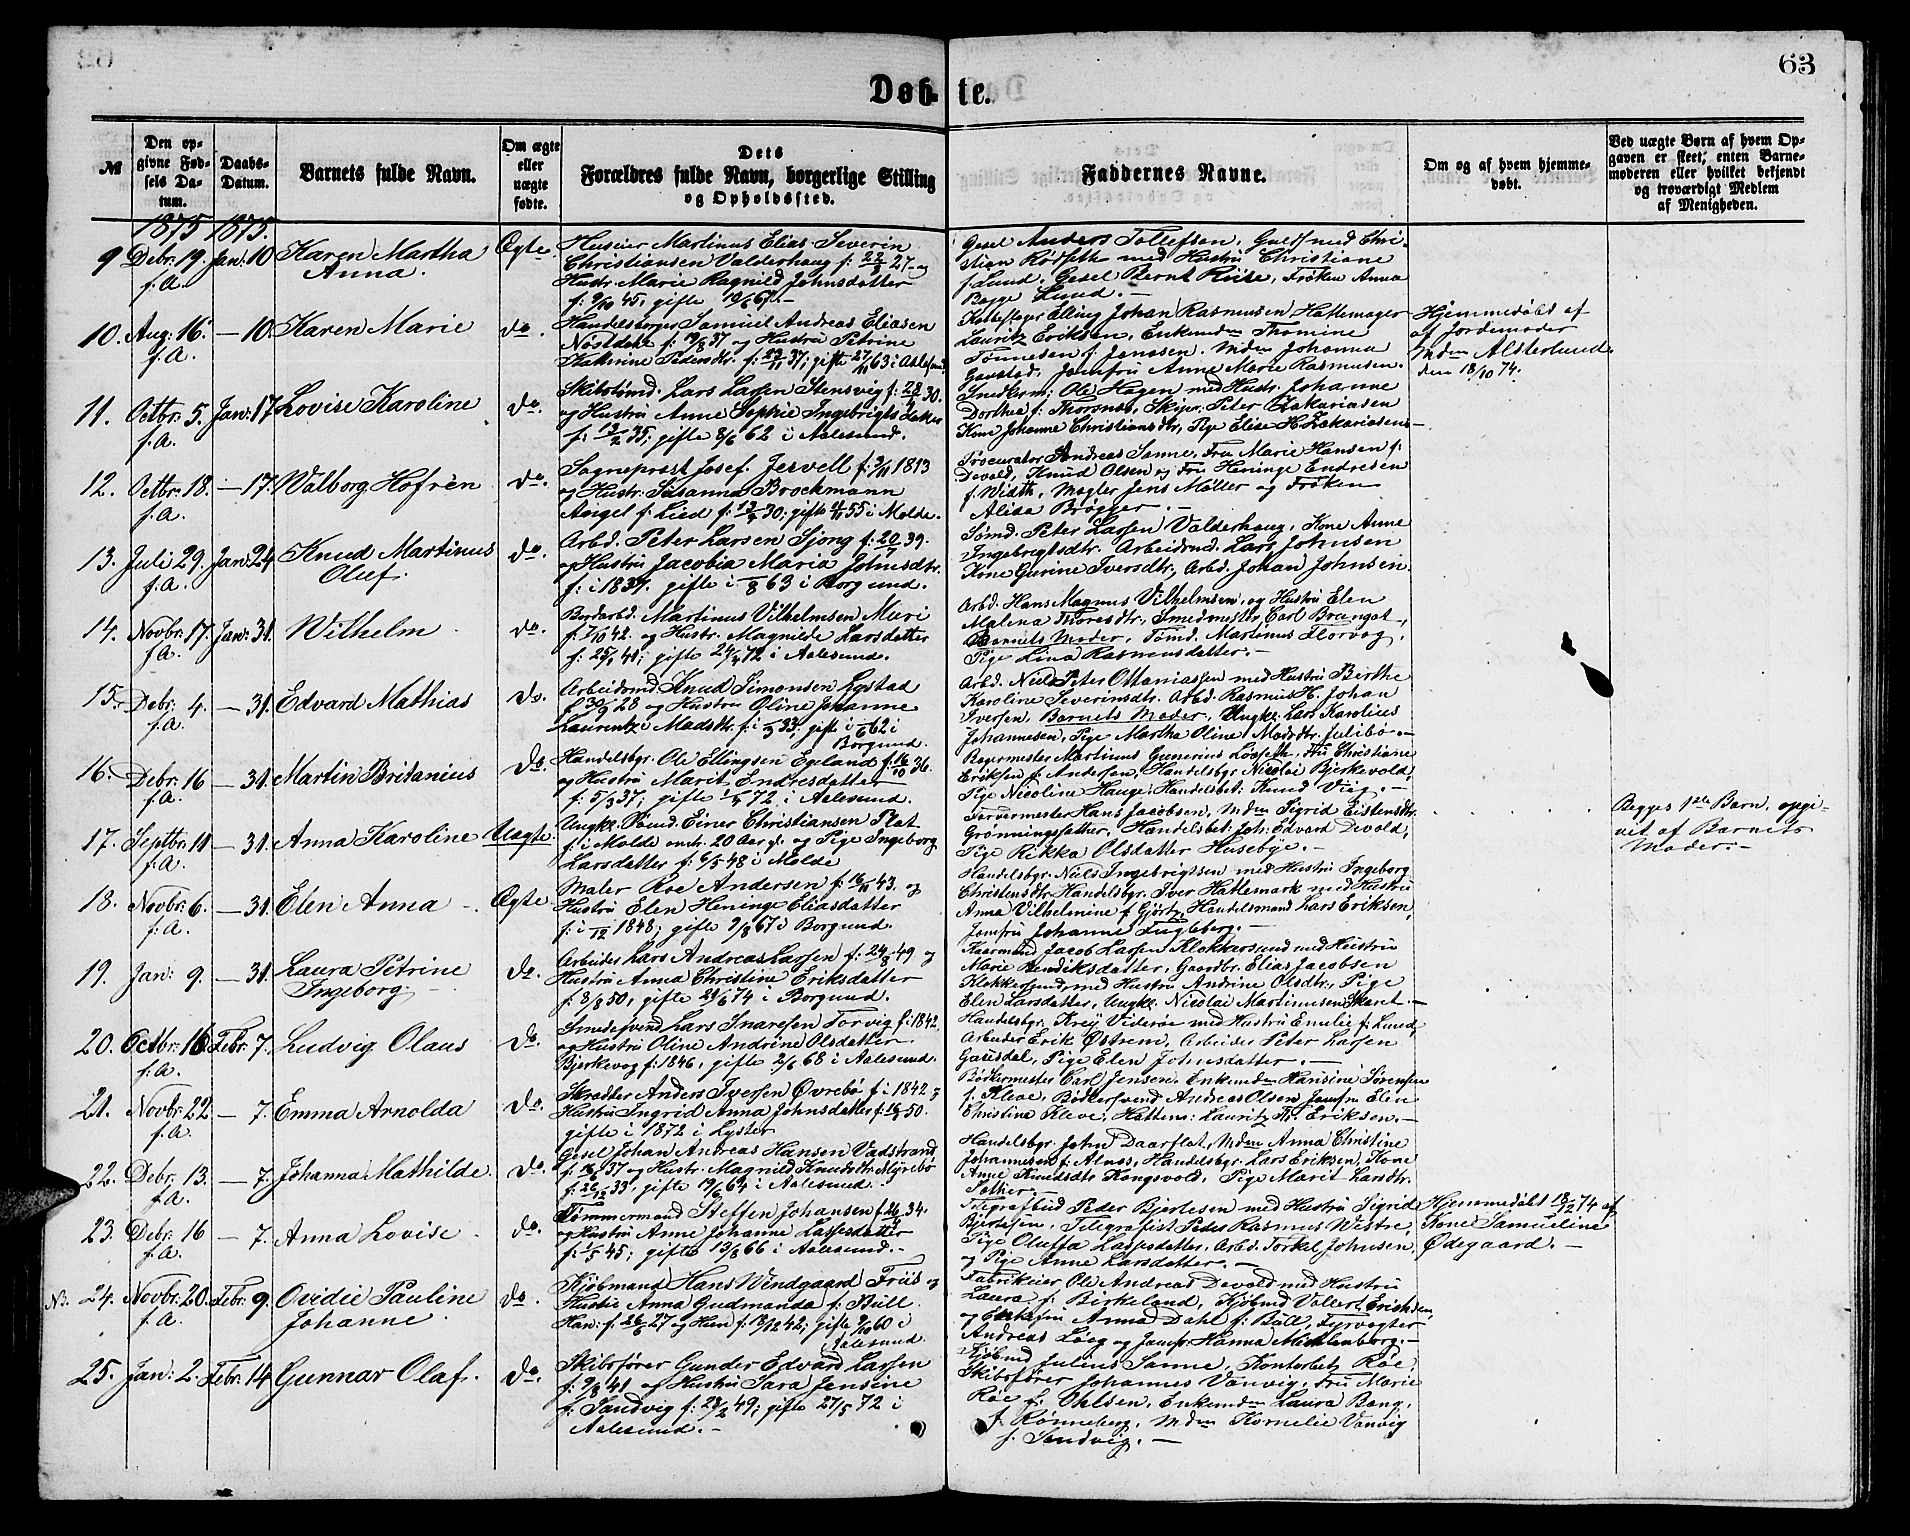 63
Døbte.
№
Den opgivne Fødsels Datum.
Daabs-Datum.
Barnets fulde Navn.
Om ægte eller uægte fødte.
Dets Forældres fulde Navn, borgerlige Stilling og Opholdssted.
Faddernes Navne.
Om og af hvem hjemmedøbt.
Ved uægte Børn af hvem Opgaven er skeet, enten Barnemoderen eller hvilket bekjendt og troværdigt Medlem af Menigheden.
1875 1875.
9 Debr: 19. f.A. Jan: 10. Karen Martha Anna. Ægte.
Huseier Martinus Elias Severin
Christiansen Valderhaug f: 22/8 27 og
Hustr. Marie Ragnild Johnsdatter
f: 9/10 45, gifte 19/6 67.-
Gesel Anders Tollefsen, Guldsmed Chri-
stian Rødseth med Hustru Christiane
f. Lund, Gesel Bernt Riise, Frøken Anna
Bagge Lund.-
10. Aug: 16. f.A. — 10. Karen Marie do.
Handelsborger Samuel Andreas Eliasen
Nostdahl f: 19/8 37 og Hustru Petrine
Kathrine Pedersdtr. f: 23/11 37; gifte 27/11 63 i Aalesund
Lauritz Eriksen, Enkemdm Thomine
Tønnesen f. Jenssen. Mdm Johanna
Gavstad. Jomfru Anne Marie Rasmusen.
Hjemmedøbt af
af Jordemoder
Mdm Alsterlund
den 18/10 74.
11. Octbr: 5. f.A. Jan: 17 Lovise Karoline do.
Skibstømd. Lars Larsen Stensvig f: 28/4 30.
og Hustru Anne Sophie Ingebrigtsdatter
f: 13/2 35; gifte 8/6 62 i Aalesund.
Snedkerm; Ole Hagen med Hustr. Johanne
Dorthea f: Thorsnes, Skipr. Peter Zakariasen
Kone Johanne Christiansdtr, Pge Elise H. Zakariasens-
12. Octbr: 18. f.A. — 17. Valborg Hofrén do.
Sogneprost Josef Jervell f: 9/11 1813
og Hustr: Susanna Brockmann
Angel f: Lied f: 13/4 30; gifte 4/11 55 i Molde.
Procurator Andreas Sanne, Fru Marie Hansen f:
Devold, Knud Olsen og Fru Heninge Endresen
f. Width, Mægler Jens Møller og Frøken
Alida Brøgger.-
13. Juli 29. f.A. Jan: 24 Knud Martinus Oluf. do.
Arbd. Peter Larsen Sjong f: 20/7 39.
og Hustru Jacobia Maria Johnsdtr.
f: i 1837. gifte i /8 63 i Borgund.
Sømd. Peter Larsen Valderhaug, Kone Anne
Ingebrigtsdtr. Arbeidsmd. Lars Johnsen
Kone Gurine Iversdtr, Arbd. Johan Johnsen.
14. Novbr: 17. f.A. Jan: 31. Wilhelm do.
Bordarbd. Martinus Vilhelmsen Muri
f. 7/10 42. og Hustr. Magnilde Larsdatter
f: 25/1 41; gifte 24/4 72 i Aalesund.
Arbd. Hans Magnus Vilhelmsen, og Hustru Elen
Malena Thoresdtr, Smedmestr, Carl Brangot,
Barnets Moder, Tømd. Martinus Florvog,
Pige Lina Rasmusdatter.-
15. Debr: 4. f.A. — 31. Edvard Mathias do.
Arbeidsmd Knud Simonsen Lystad
f 30/9 28 og Hustru Oline Johanne
Laurentze Madsdtr. f: i /3 33, gift i /6 62 i
Borgund.
Arbd. Niels Peter Ottaniassen med Hustru Birthe
Karoline Severinsdtr. Arbd. Rasmus H. Johan
Iversen, Barnets Moder, Ungkr. Lars Karolius
Johannesen, Pige Martha Oline Madsdtr. Julibø.-
16. Debr: 16 f.A. — 31. Martin Britanius do.
Handelsbgr. Ole Ellingsen Egeland f: 16/10 36.
og Hustru Marit Endresdatter
f: 5/3 37; gifte 1/4 72 i Aalesund.
Bagermester Martinus Gunerius Løvseth, Fru Christiane
Eriksen f. Andersen, Handelsbgr Nicolai Bjerkevold,
Pge Nicoline Hauge, Handelsbet: Knud Viig.-
17. Septbr: 11 f.A. — 31. Anna Karoline Uægte.
Ungkr. Sømd. Einer Christiansen Plat
f: i Molde omtr. 20 Aar gl. og Pige Ingeborg
Larsdatter f: 6/5 48 i Molde
Farvermester Hans Jacobsen, Mdm Sigrid Eistensdtr.
Grønningsæter, Handelsbet: Joh: Edvard Devold,
Pige Rikka Olsdatter Husebye.-
Begges 1ste Barn. opgi-
vit af Barnets
Moder.-
18. Novbr: 6. f.A. — 31. Elen Anna Ægte
Maler Roe Andersen f: 16/11 43. og
Hustru Elen Heninge Eliasdatter
f: i /12 1848; gifte 2/8 67 i Borgund.
Handelsbgr. Niels Ingebrigtsen med Hustru Ingeborg
Christensdtr. Handelsbgr. Iver Hatlemark med Hustru
Anna Vilhelmine f Gjørtz, Handelsmand Lars Eriksen,
Jomfru Johanne Fugleberg.-
19. Jan: 9. — 31. Laura Petrine Ingeborg. do.
Arbeider Lars Andreas Larsen f: 24/8 49 og
Hustru Anna Christine Eriksdatter
f: 8/8 50, gifte 21/6 74 i Borgund.
Kaarmand Jacob Larsen Klokkersund med Hustru
Marie Hendriksdatter, Gaardbr. Elias Jacobsen
Klokkersund, med Hustru Andrine Olsdtr, Pige
Elen Larsdatter, Ungkr. Nicolai Martinusen Skaret.-
20. Octbr: 16 f.A. Febr: 7. Ludvig Olaus do.
Smedesvend Lars Snaresen Torvig f: i 1842.
og Hustru Oline Andrine Olsdatter
Bjerkevog f: 1846, gifte 2/6 68 i Aalesund.
Handelsbgr. Krey Viderøe med Hustru Emilie f: Lund,
Arbeider Erik Østrem, Arbeider Peter Larsen
Gausdal, Pige Elen Johnsdatter.-
21. Novbr: 22. f.A. — 7. Emma Arnolda do.
Skrædder Anders Iversen Øvrebø f: i 1842 og
Hustru Ingrid Anna Johnsdatter f: 16/4 50.
gifte i 1872 i Lyster
Bødkermester Carl Jensen, Enkemdm Hansine Sørensen
f. Kleve, Bødkersvend Andreas Olsen Jomfru Elen
Christine Kleve, Hattem: Lauritz Th. Eriksen.-
22. Debr: 13. f.A. — 7. Johanna Mathilde. do.
Gesel Johan Andreas Hansen Vadstrand
f: 16/6 37 og Hustr. Magnild Knudsdtr. Myrebø
f: 26/12 33, gifte 19/6 64 i Aalesund.-
Handelsbgr. John Daarflat, Mdm Anna Christine
Johannesen f. Alnes, Handelsbgr. Lars Eriksen, Kone
Anne Knudsdtr Kongsvold, Pige Marit Larsdtr.
23. Debr: 16 f.A. — 7. Anna Lovise do.
Tømmermand Steffen Johansen f: 26/4 34.
og Hustru Anne Johanne Larsdatter
f: 1/5 45; gifte 13/8 66 i Aalesund.-
Telegrafbud Peder Bjørlesen med Hustru Sigrid
Bjørlesen, Telegrafist Peder Rasmus Westre,
Pige Oluffa Larsdatter, Arbd. Torkel Johnsen,
og Pige Anne Larsdatter.-
Hjemmedøbt 18/12 74 af
Kone Samueline
Ødegaard.-
N. 24. Novbr: 20. f.A. Febr: 9. Ovidie Pauline Johanne. do.
Kjøbmand Hans Windgaard Friis og
Hustru Anna Gudmanda f: Büll.
Han: f: 26/6 27 og Hun f: 13/12 42; gifte 9/10 60 i
Aalesund.
Fabrikeier Ole Andreas Devold med Hustru
Laura f: Birkeland, Kjøbmd Vollert Eriksen
og Enkefru Anna Dahl f: Büll, Fyrvogter
Andreas Løeg og Jomfr: Hanna Michlenborg.-
25. Jan: 2. Febr: 14 Gunnar Olaf. do.
Skibsfører Gunder Edvard Larsen
f: 9/8 41 og Hustru Sara Jensine
f: Sandvig f: 23/2 49; gifte 27/5 72 i
Aalesund.-
Kjøbmd Julius Sanne, Kontorbetj. Røe,
Skibsfører Johannes Vanvig, Fru Marie
Røe f. Ohlsen, Enkemdm Laura Bang,
f. Rønneberg, Mdm Kornelie Vanvig
f. Sandvig.-